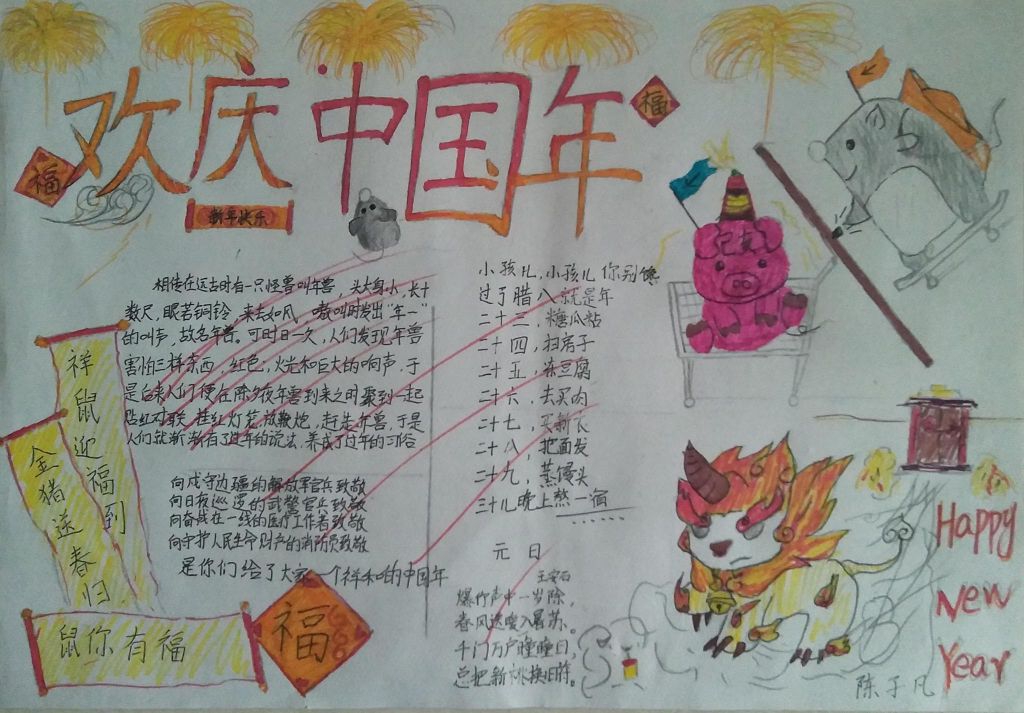 欢庆中国年
福
福
新年快乐
相传在远古时有一只怪兽叫年兽，头大身小，长十
数尺，眼若铜铃，来去如风，嗷叫时发出“年一”
的叫声，故名年兽。可时日一久，人们发现年兽
害怕三样东西，红色，火光和巨大的响声，于
是后来人们便在除夕夜年兽到来之时聚到一起
贴红对联，挂红灯笼，放鞭炮，赶走年兽，于是
人们就渐渐有了过年的说法，养成了过年的习俗
向戍守边疆的解放军官兵致敬
向日夜巡逻的武警官兵致敬
向奋战在一线的医疗工作者致敬
向守护人民生命财产的消防员致敬
是你们给了大家一个祥和的中国年
祥鼠迎福到
金猪送春归
鼠你有福
福
小孩儿，小孩儿你别馋
过了腊八就是年
二十三，糖瓜粘
二十四，扫房子
二十五，冻豆腐
二十六，去买肉
二十七，
二十八，把面发
二十九，蒸馒头
三十儿晚上熬一宿
……
元日
王安石
爆竹声中一岁除，
春风送暖入屠苏。
千门万户瞳瞳日，
总把新桃换旧符。
Happy
New
Year
陈子凡